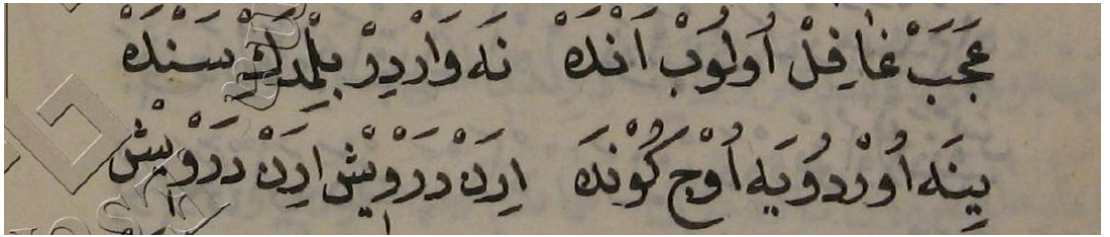 عَجَبْ غَافِلْ اُولُوبْ اَنْدَهْ نَه وَارْدِرْ بِلْمَدِكْ سَنْدَهْ
يِينَه اُورْدُويَه اُوچ كُونْدَه اِرَنْ دَرْوِيشْ اِرَنْ دَرْوِيشْ